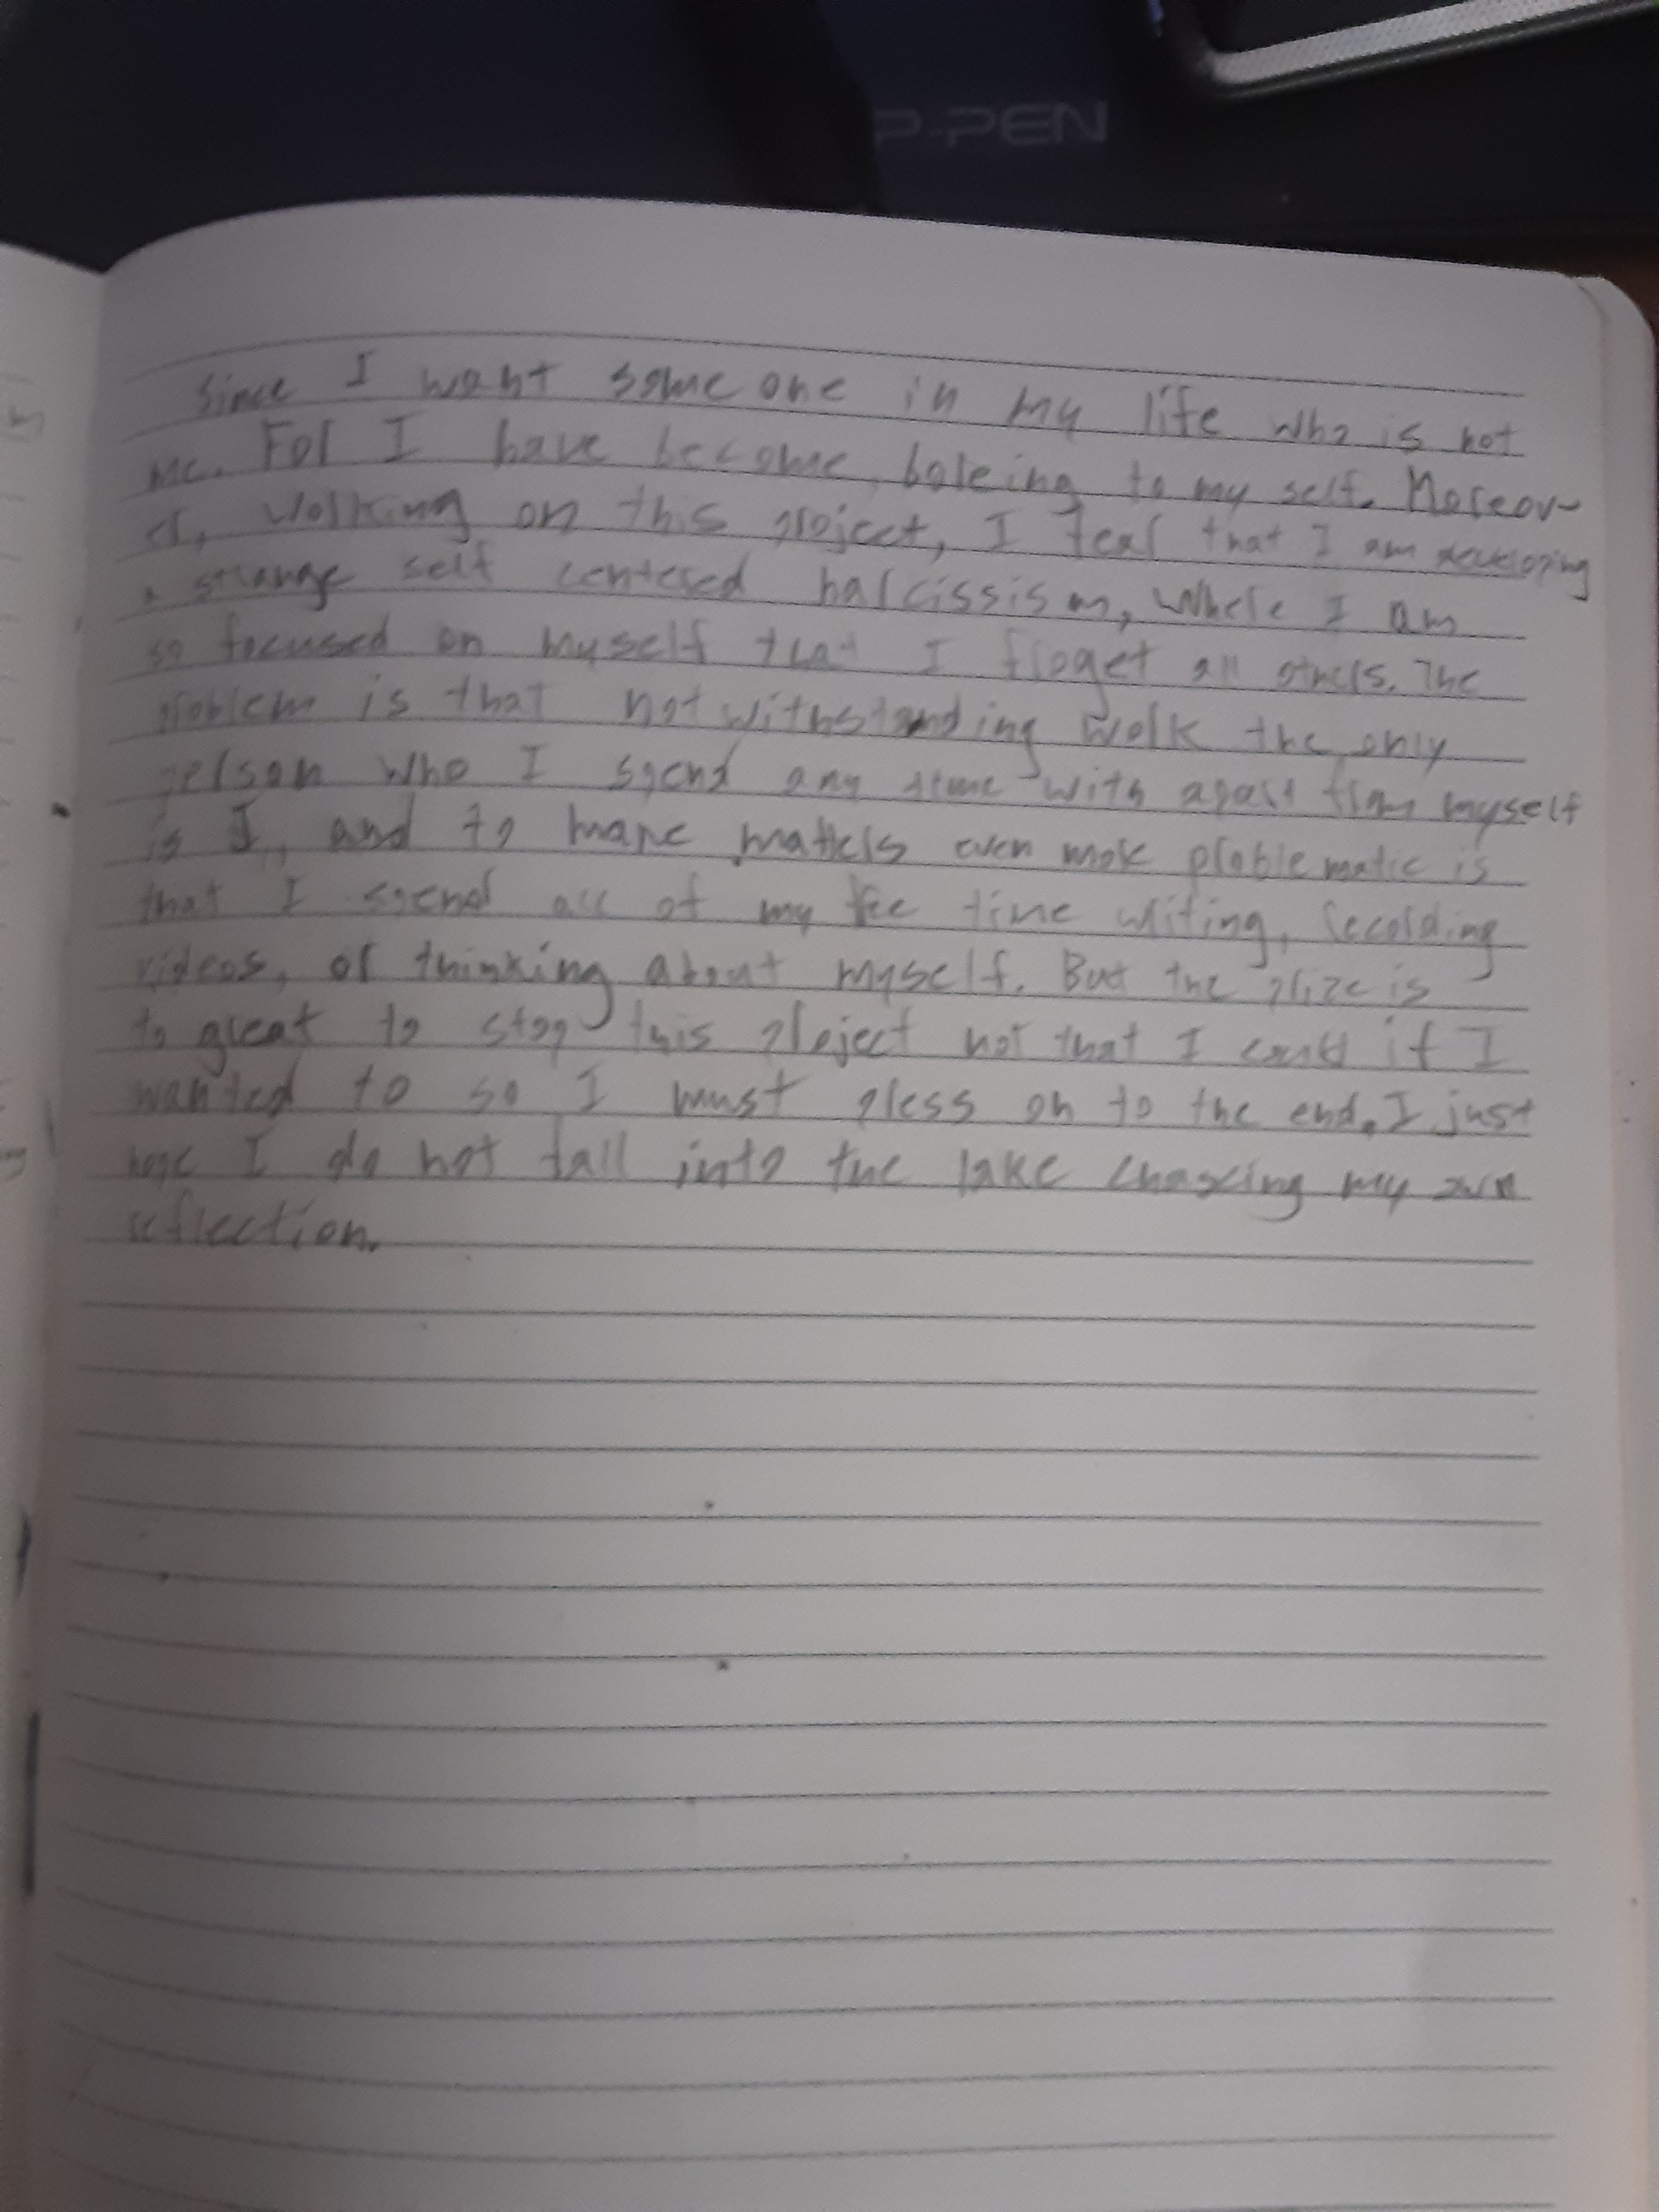 P-PEN
Since I want some one in my life who is not
me. For I have become boreing to my self. Moreov-
er, working on this project, I fear that I am developing
a strange self centered narcissism, where I am
so focused on myself that I froget all others. The
problem is that notwithstanding work the only
person who I spend any time with apart from myself
is I, and to make matters even more problematic is
that I spend all of my fee time writing, recording
videos, or thinking about myself. But the prize is
to great to stop this project not that I could if I
wanted to so I must press on to the end. I just
hope I do not fall into the lake chasing my own
reflection.